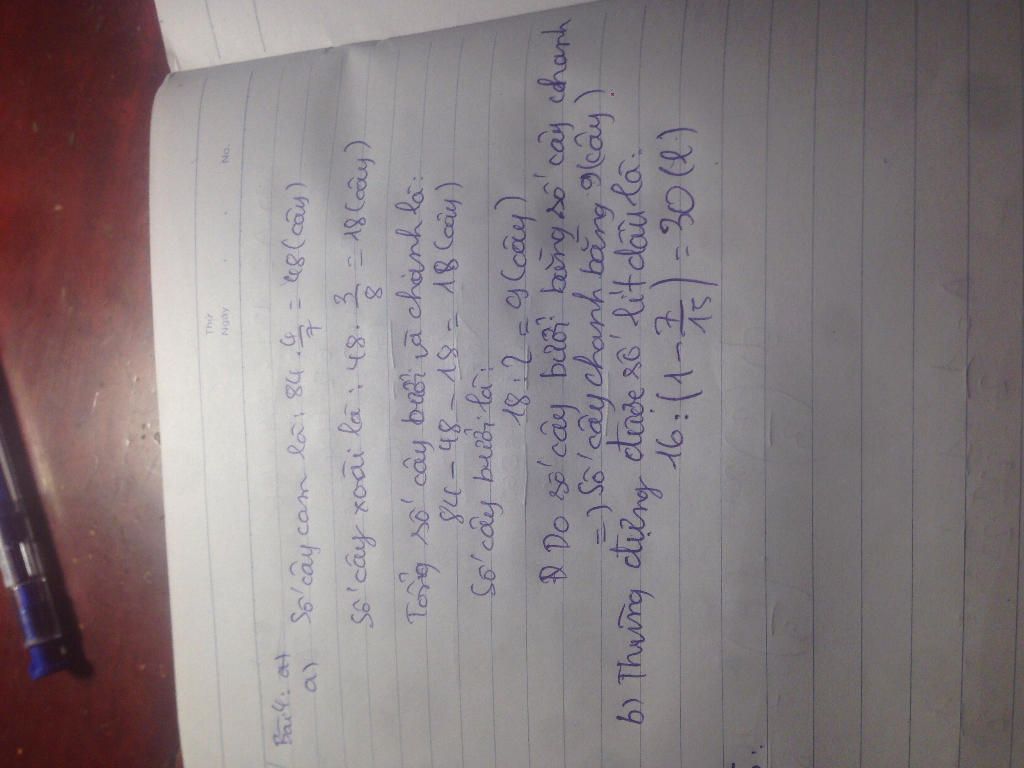 Thứ
Ngày
No.
Bài 4: a)
a) Số cây cam là: 84 . 4/7 = 48 (cây)
Số cây xoài là: 48 . 3/8 = 18 (cây)
Tổng số cây bưởi và chanh là:
84 - 48 - 18 = 18 (cây)
Số cây bưởi là:
18 : 2 = 9 (cây)
Do số cây bưởi bằng số cây chanh
=) Số cây chanh bằng 9 (cây)
b) Thùng đựng được số lít dầu là:
16 : (1 - 7/15) = 30 (l)